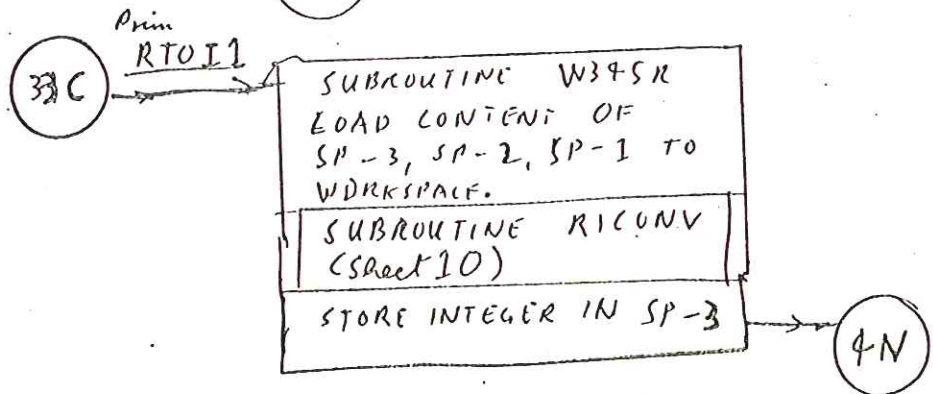 Prim
RTOI1
33C
SUBROUTINE W345R
LOAD CONTENT OF
SP-3, SP-2, SP-1 TO
WORKSPACE.
SUBROUTINE RICONV
(Sheet 10)
STORE INTEGER IN SP-3
4N